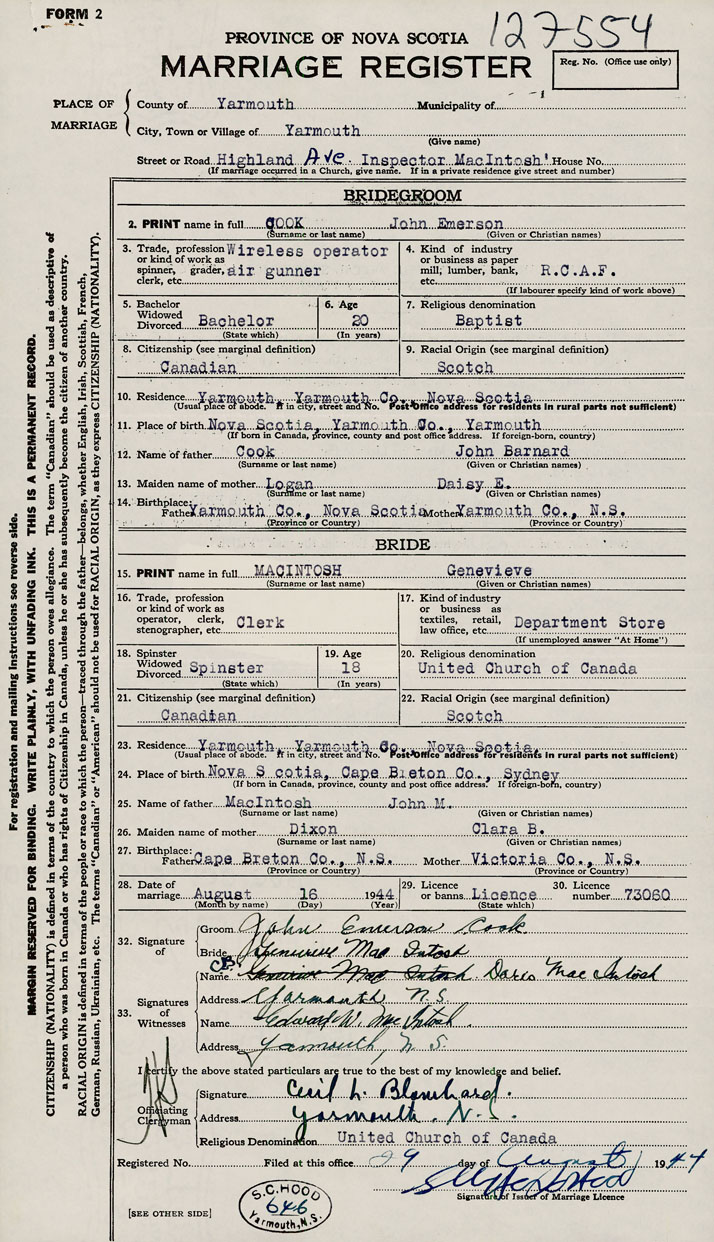 FORM 2
127554
PROVINCE OF NOVA SCOTIA
MARRIAGE REGISTER
Reg. No. (Office use only)
PLACE OF MARRIAGE
County of Yarmouth Municipality of
City, Town or Village of Yarmouth
(Give name)
Street or Road Highland Ave. Inspector MacIntosh' House No.
(If marriage occurred in a Church, give name. If in a private residence give street and number)
BRIDEGROOM
2. PRINT name in full COOK John Emerson
(Surname or last name) (Given or Christian names)
3. Trade, profession or kind of work as spinner, grader, clerk, etc. Wireless operator air gunner
4. Kind of industry or business as paper mill, lumber, bank, etc. R.C.A.F.
(If labourer specify kind of work above)
5. Bachelor Widowed Divorced Bachelor
(State which)
6. Age 20
(In years)
7. Religious denomination
Baptist
8. Citizenship (see marginal definition)
Canadian
9. Racial Origin (see marginal definition)
Scotch
10. Residence Yarmouth, Yarmouth Co., Nova Scotia
(Usual place of abode. If in city, street and No. Post Office address for residents in rural parts not sufficient)
11. Place of birth Nova Scotia, Yarmouth Co., Yarmouth
(If born in Canada, province, county and post office address. If foreign-born, country)
12. Name of father Cook John Barnard
(Surname or last name) (Given or Christian names)
13. Maiden name of mother Logan Daisy E.
(Surname or last name) (Given or Christian names)
14. Birthplace: Father Yarmouth Co., Nova Scotia Mother Yarmouth Co., N.S.
(Province or Country) (Province or Country)
BRIDE
15. PRINT name in full MACINTOSH Genevieve
(Surname or last name) (Given or Christian names)
16. Trade, profession or kind of work as operator, clerk, stenographer, etc. Clerk
17. Kind of industry or business as textiles, retail, law office, etc. Department Store
(If unemployed answer "At Home")
18. Spinster Widowed Divorced Spinster
(State which)
19. Age 18
(In years)
20. Religious denomination
United Church of Canada
21. Citizenship (see marginal definition)
Canadian
22. Racial Origin (see marginal definition)
Scotch
23. Residence Yarmouth, Yarmouth Co., Nova Scotia,
(Usual place of abode. If in city, street and No. Post Office address for residents in rural parts not sufficient)
24. Place of birth Nova S cotia, Cape Breton Co., Sydney
(If born in Canada, province, county and post office address. If foreign-born, country)
25. Name of father MacIntosh John M.
(Surname or last name) (Given or Christian names)
26. Maiden name of mother Dixon Clara B.
(Surname or last name) (Given or Christian names)
27. Birthplace: Father Cape Breton Co., N.S. Mother Victoria Co., N.S.
(Province or Country) (Province or Country)
28. Date of marriage August 16 1944
(Month by name) (Day) (Year)
29. Licence or banns Licence
(State which)
30. Licence number 73060
32. Signature of
Groom John Emerson Cook
Bride Genevieve Mac Intosh
33. Signatures of Witnesses
CB Name Genevieve Mac Intosh Doris Mac Intosh
Address Yarmouth N.S.
Name Edward W. MacIntosh.
Address Yarmouth, N.S.
I certify the above stated particulars are true to the best of my knowledge and belief.
Officiating Clergyman
Signature Cecil L. Blanchard.
Address Yarmouth. N.S.
Religious Denomination United Church of Canada
Registered No. Filed at this office 29 day of August 1944
Signature of Issuer of Marriage Licence
S.C. HOOD
646
Yarmouth, N.S.
[SEE OTHER SIDE]
For registration and mailing instructions see reverse side.
MARGIN RESERVED FOR BINDING. WRITE PLAINLY, WITH UNFADING INK. THIS IS A PERMANENT RECORD.
CITIZENSHIP (NATIONALITY) is defined in terms of the country to which the person owes allegiance. The term "Canadian" should be used as descriptive of
a person who was born in Canada or who has rights of Citizenship in Canada, unless he or she has subsequently become the citizen of another country.
RACIAL ORIGIN is defined in terms of the people or race to which the person—traced through the father—belongs, whether English, Irish, Scottish, French,
German, Russian, Ukrainian, etc. The terms "Canadian" or "American" should not be used for RACIAL ORIGIN, as they express CITIZENSHIP (NATIONALITY).